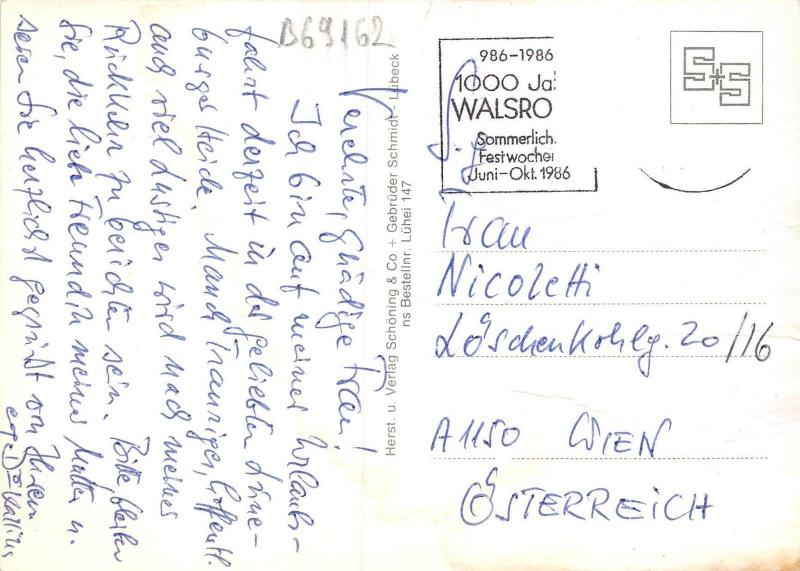 B69162
Verehrte, gnädige Frau!
Ich bin auf meiner Urlaubs-
fahrt derzeit in der geliebten Lüne-
burger Heide. Manch Trauriges, hoffentl.
auch viel Lustiges wird nach meiner
Rückkehr zu berichten sein. Bitte bleiben
Sie, die liebe Freundin meiner Mutter u.
seien Sie herzlichst gegrüßt von Ihrem
Herst. u. Verlag Schöning & Co + Gebrüder Schmidt - Lübeck
ns Bestellnr. Lühei 147
986-1986
1000 Ja
WALSRO
Sommerlich.
Festwochen
Juni-Okt. 1986
S+S
Frau
Nicoletti
Löschenkohlg. 20/16
A1150 WIEN
ÖSTERREICH